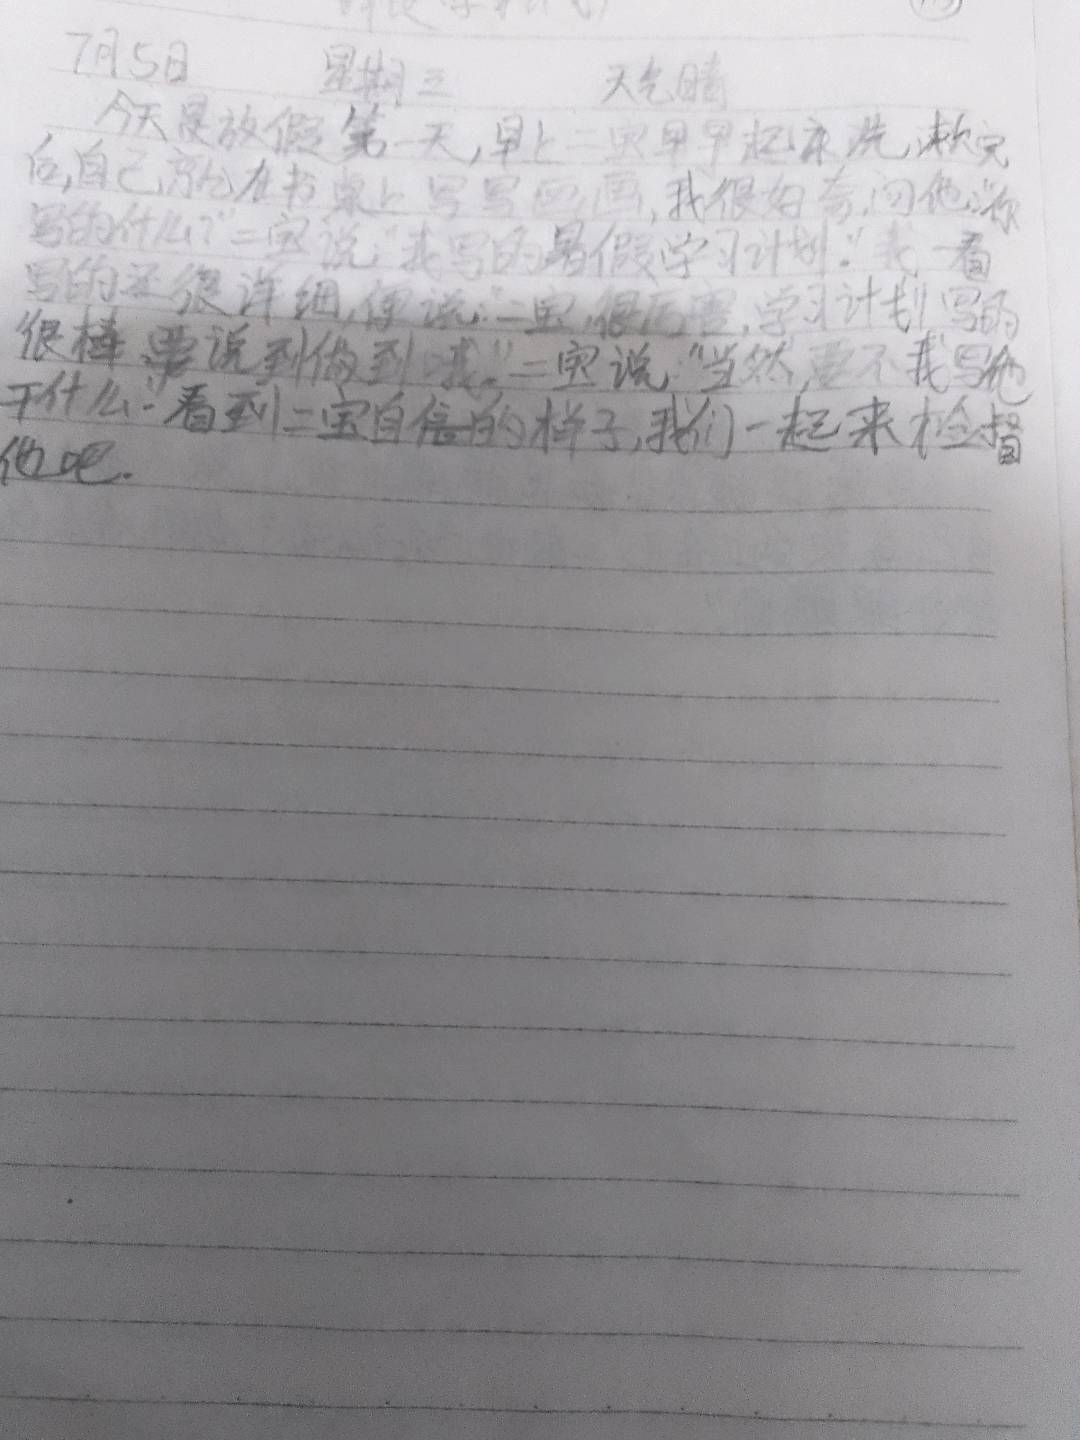 7月5日 星期三 天气晴
今天是放假第一天,早上二宝早早起床洗,漱完
后,自己就在书桌上写写画画,我很好奇,问他:"你
写的什么?"二宝说:"我写的暑假学习计划."我一看
写的还很详细,便说:"二宝,很厉害,学习计划写的
很棒,要说到做到哦."二宝说:"当然,要不我写他
干什么."看到二宝自信的样子,我们一起来检督
他吧.